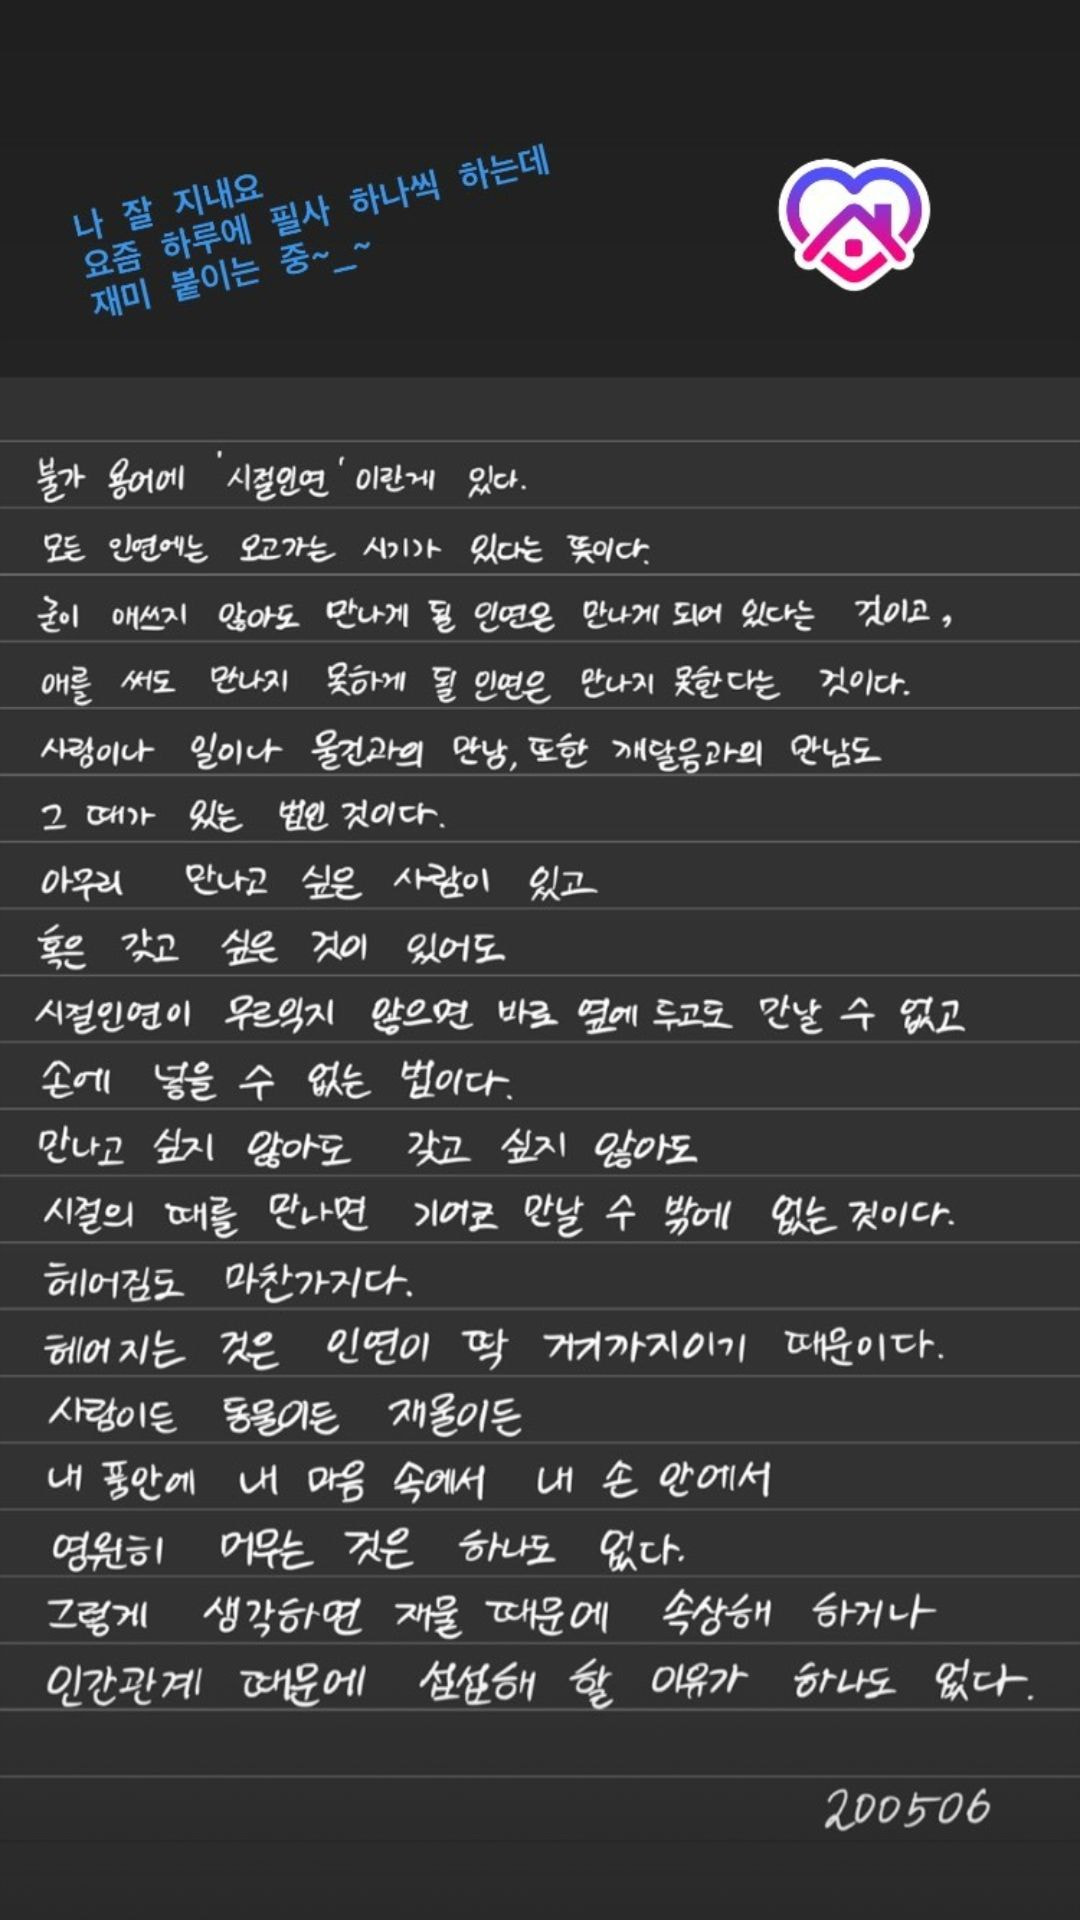 나 잘 지내요
요즘 하루에 필사 하나씩 하는데
재미 붙이는 중~_~
불가 용어에 '시절인연'이란게 있다.
모든 인연에는 오고가는 시기가 있다는 뜻이다.
굳이 애쓰지 않아도 만나게 될 인연은 만나게 되어 있다는 것이고,
애를 써도 만나지 못하게 될 인연은 만나지 못한다는 것이다.
사람이나 일이나 물건과의 만남, 또한 깨달음과의 만남도
그 때가 있는 법인 것이다.
아무리 만나고 싶은 사람이 있고
혹은 갖고 싶은 것이 있어도
시절인연이 무르익지 않으면 바로 옆에 두고도 만날 수 없고
손에 넣을 수 없는 법이다.
만나고 싶지 않아도 갖고 싶지 않아도
시절의 때를 만나면 기어코 만날 수 밖에 없는 것이다.
헤어짐도 마찬가지다.
헤어지는 것은 인연이 딱 거기까지이기 때문이다.
사람이든 동물이든 재물이든
내 품안에 내 마음 속에서 내 손 안에서
영원히 머무는 것은 하나도 없다.
그렇게 생각하면 재물 때문에 속상해 하거나
인간관계 때문에 섭섭해 할 이유가 하나도 없다.
200506